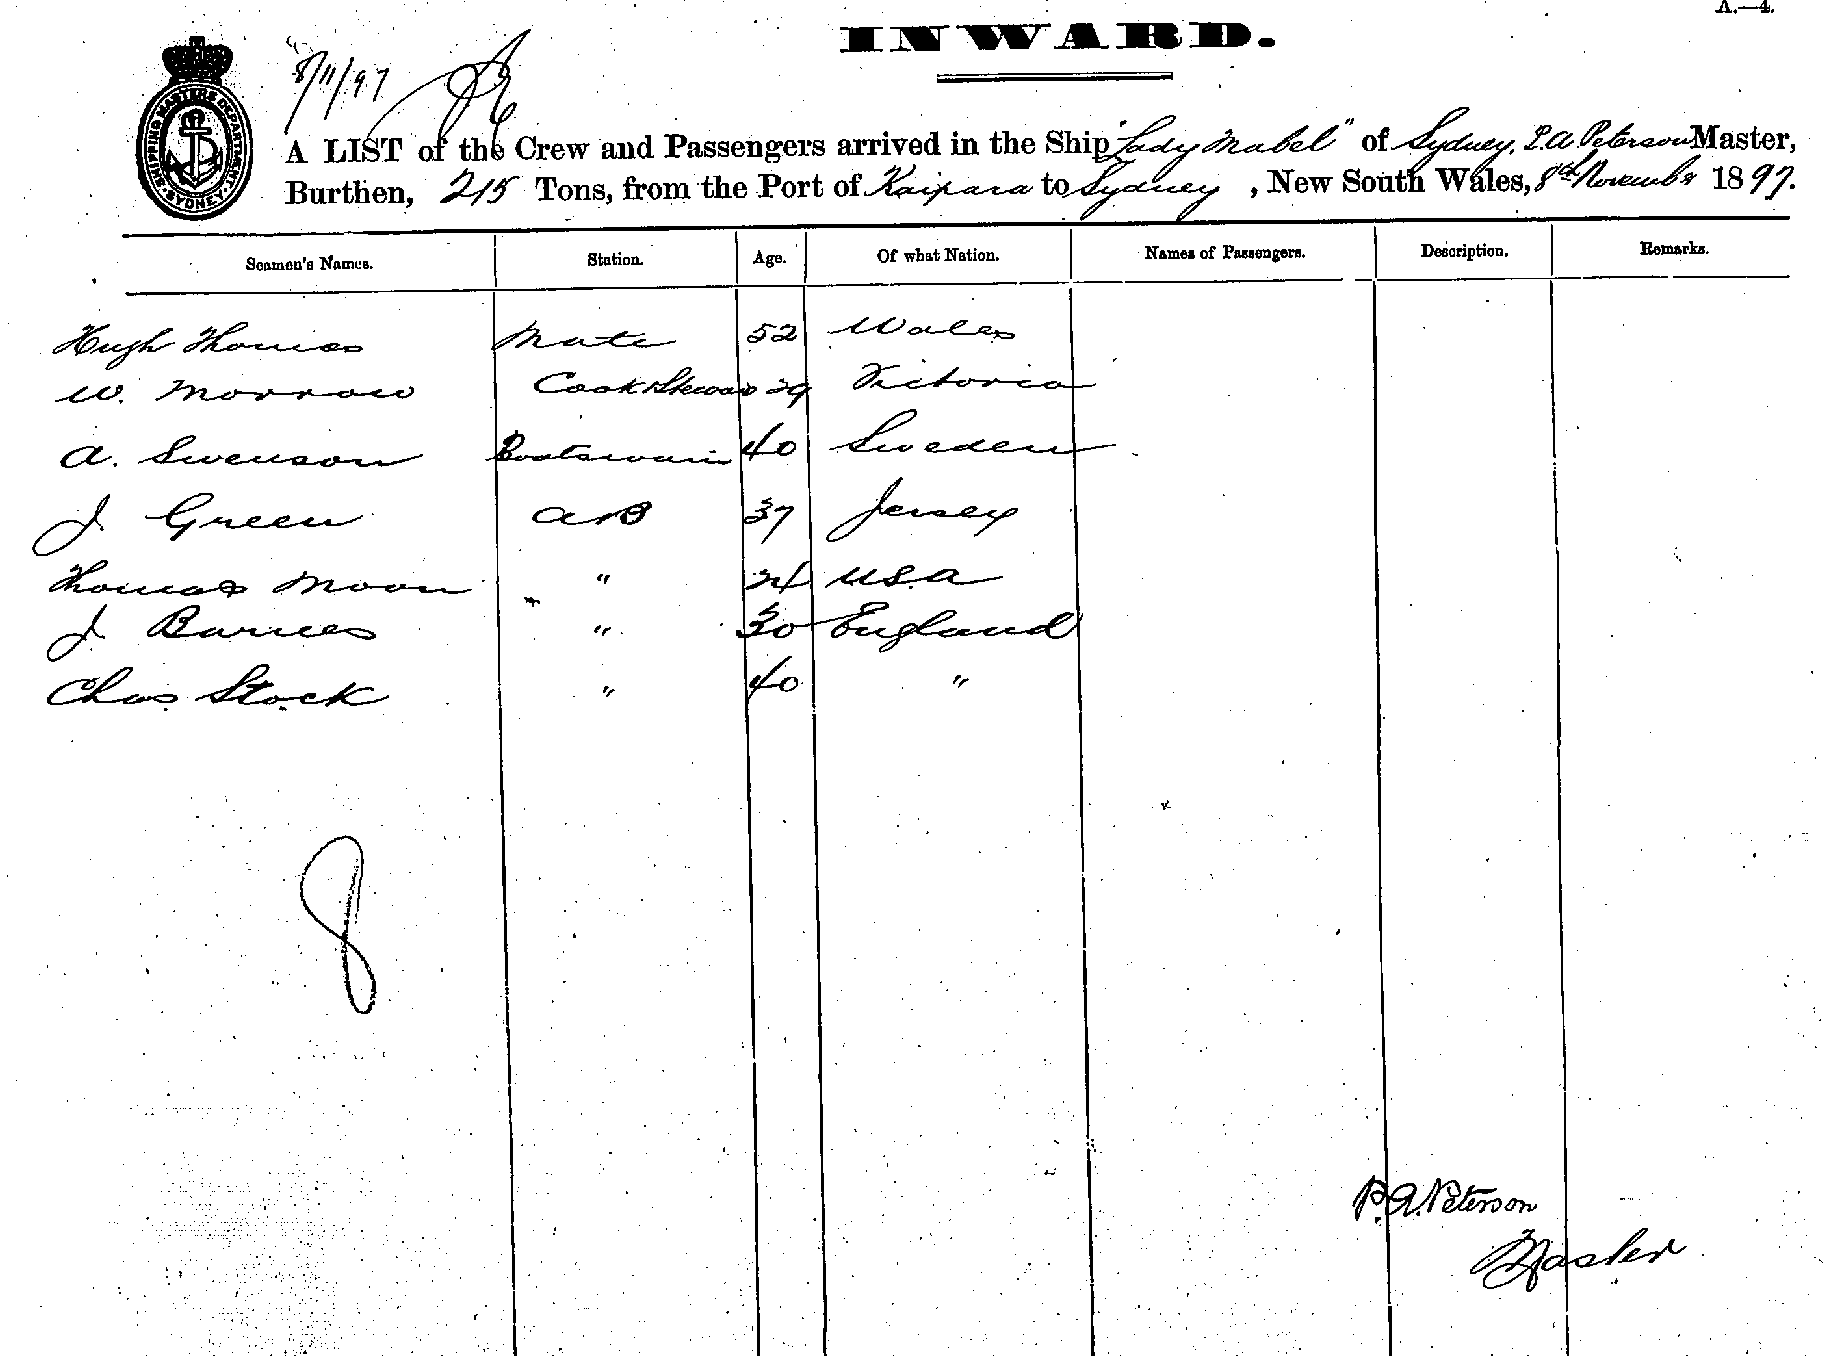 A.—4.
INWARD.
8/11/97
SHIPPING MASTERS DEPARTMENT SYDNEY
A LIST of the Crew and Passengers arrived in the Ship "Lady Mabel" of Sydney, P.A Peterson Master,
Burthen, 215 Tons, from the Port of Kaipara to Sydney, New South Wales, 8th November 1897.
Seamen's Names. Station. Age. Of what Nation. Names of Passengers. Description. Remarks.
Hugh Thomas Mate 52 Wales
W. Morrow Cook & Steward 29 Victoria
A. Swenson Boatswain 40 Sweden
J. Green AB 37 Jersey
Thomas Moon " 24 USA
J. Barnes " 30 England
Chas Stock " 40 "
8
P. A. Peterson
Master